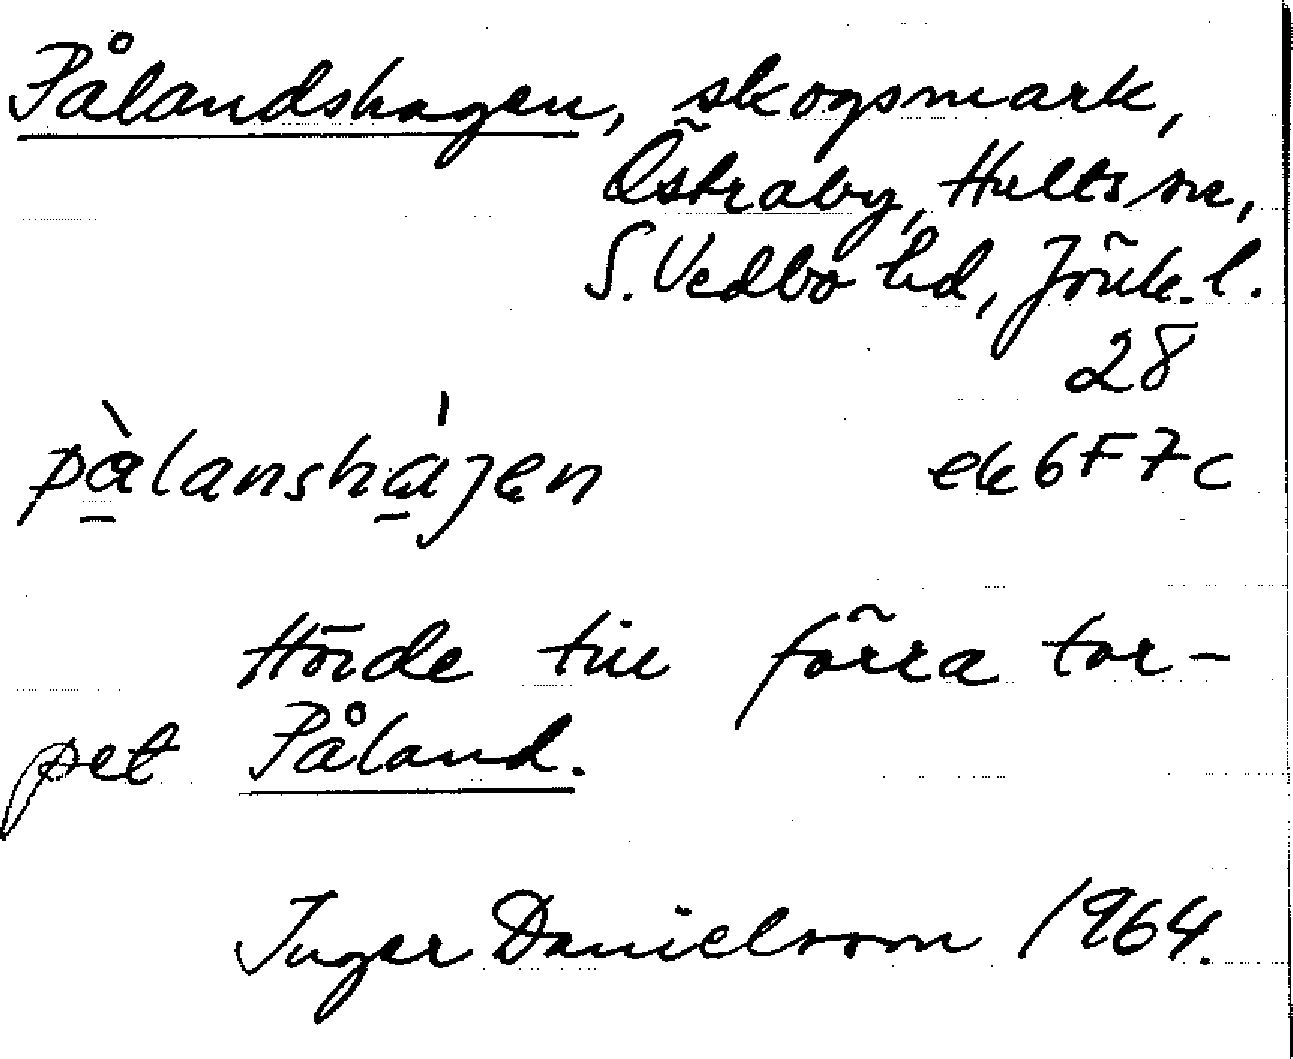 Pålandshagen, skogsmark,
Östraby, Hults sn,
S. Vedbo hd, Jönk. l.
28
pàlanshájen
ek 6F7c
Hörde till förra tor-
pet Påland.
Inger Danielsson 1964.